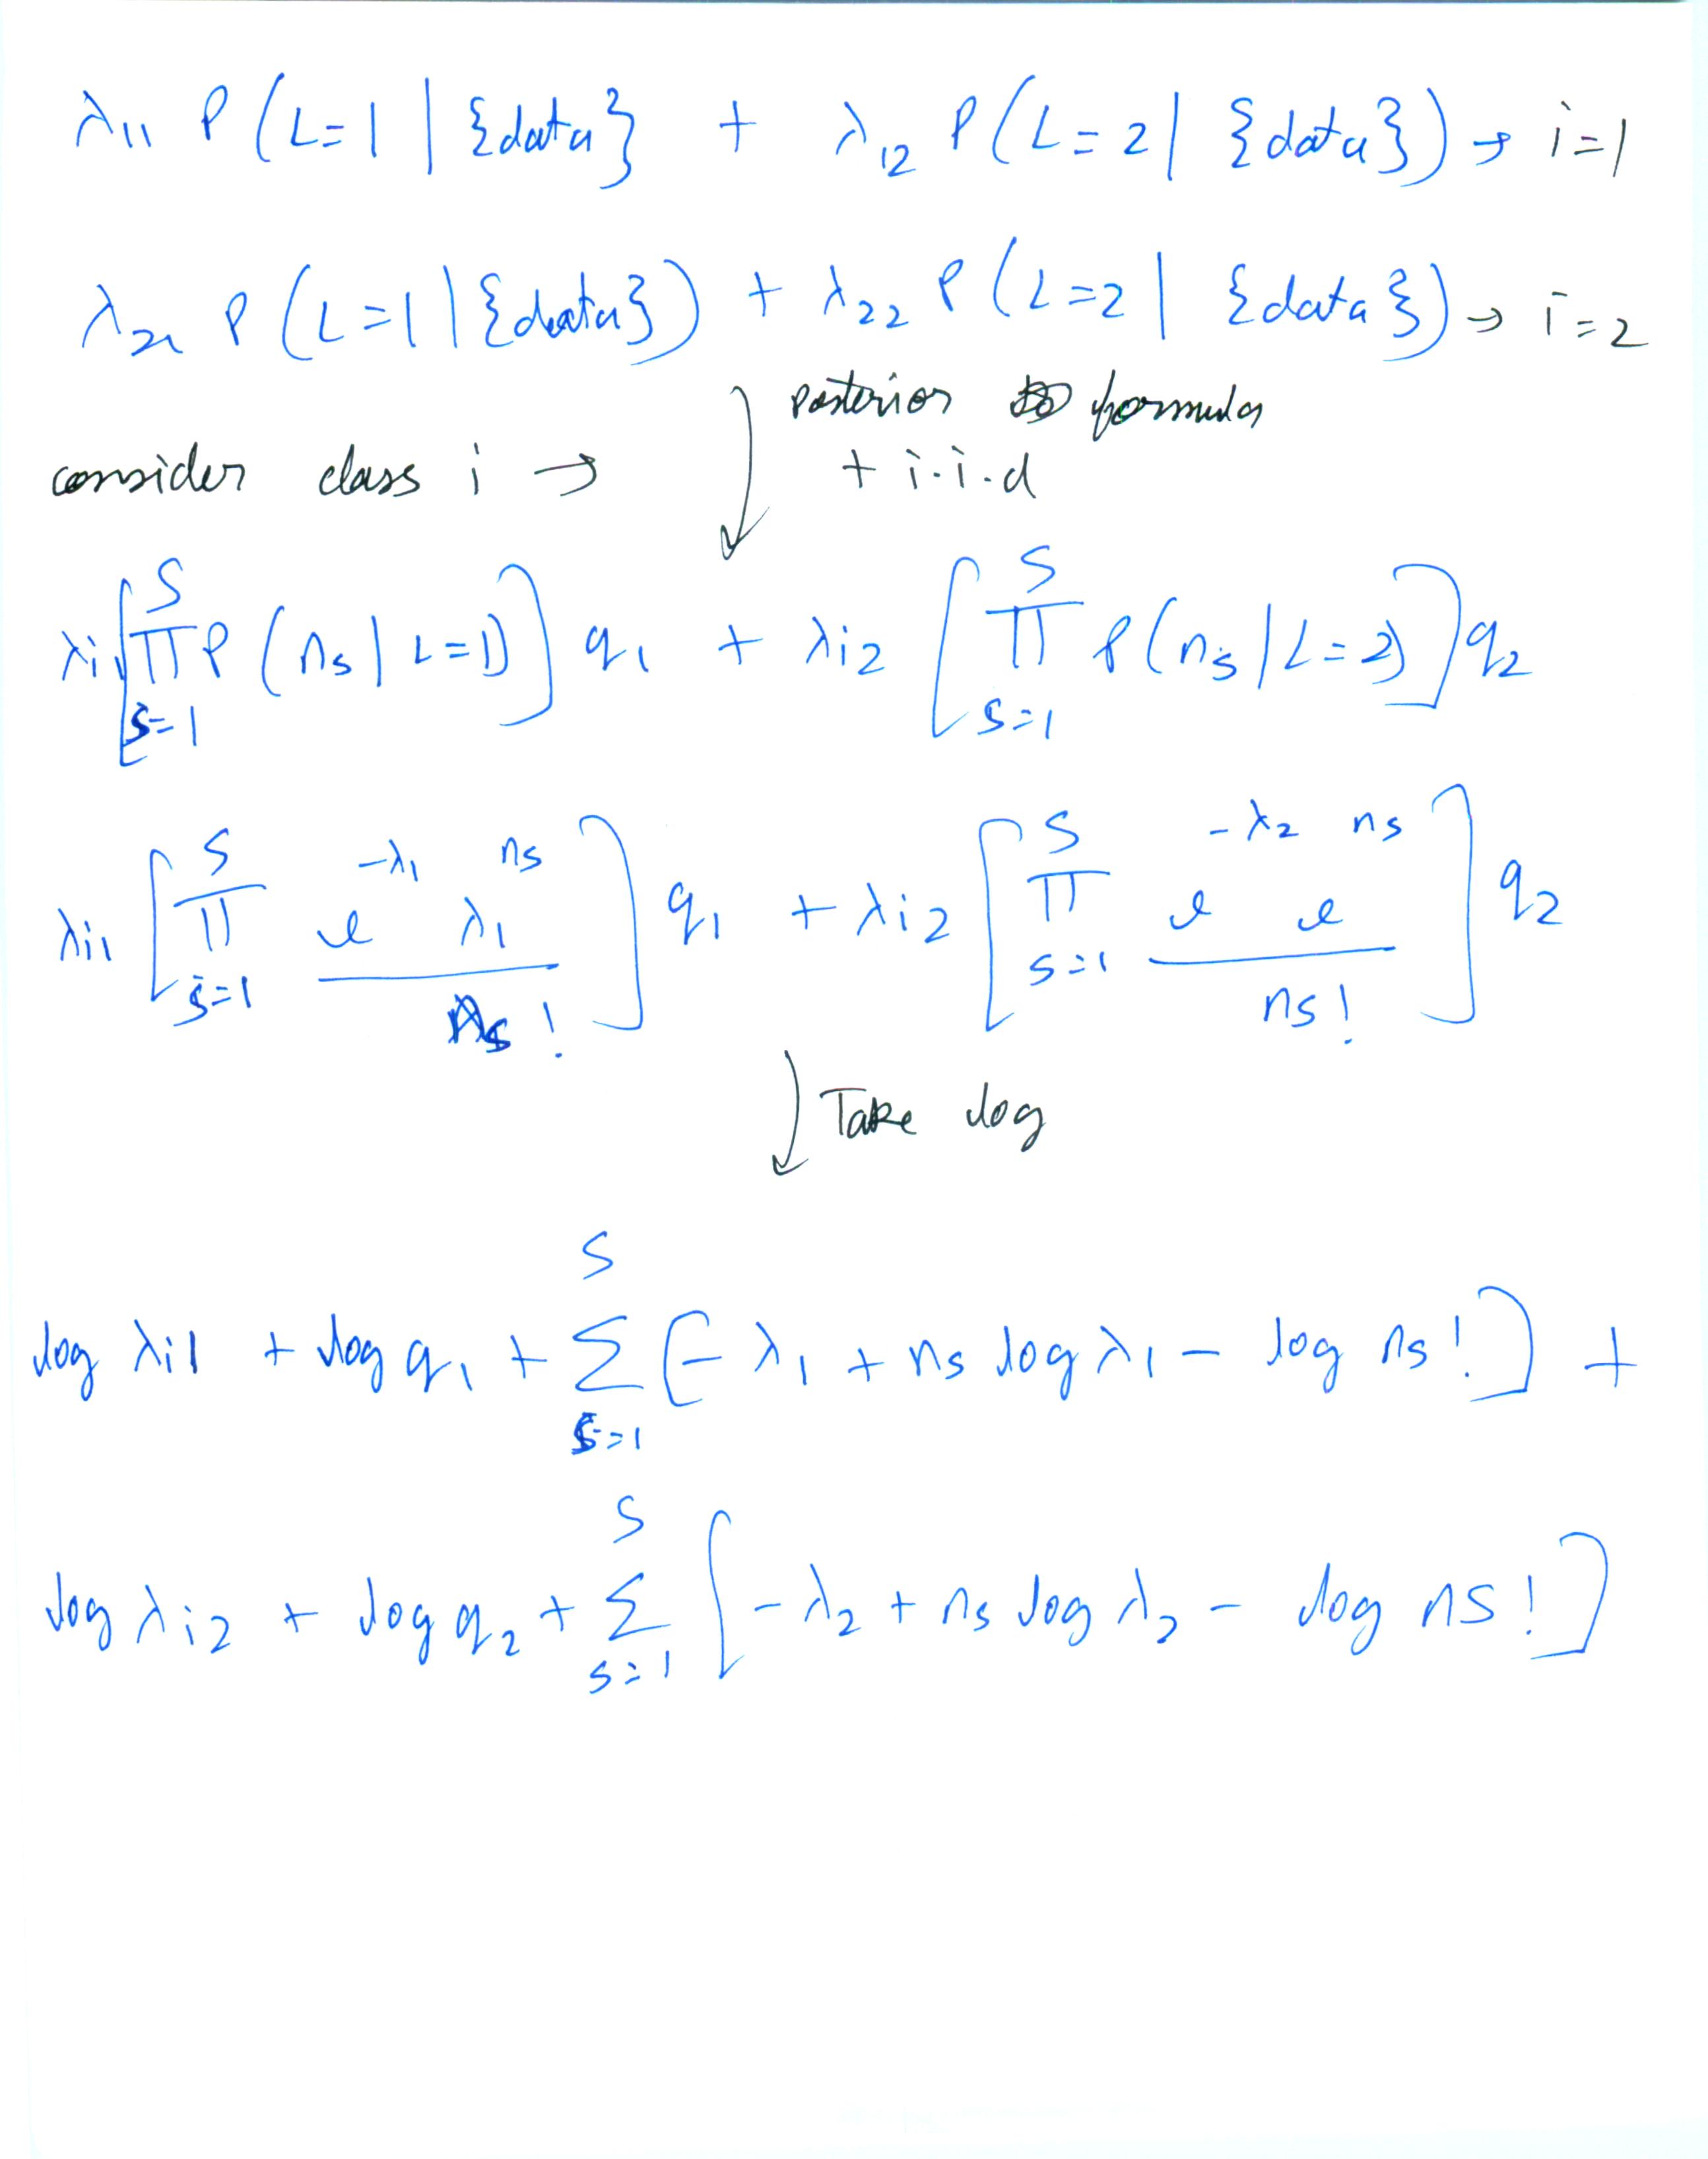 λ11 P(L=1 | {data} + λ12 P(L=2 | {data}) → i=1
λ21 P(L=1 | {data}) + λ22 P(L=2 | {data}) → i=2
posterior formula
consider class i → + i.i.d
λi1 [∏_{s=1}^{S} P(ns | L=1)] q1 + λi2 [∏_{s=1}^{S} P(ns | L=2)] q2
λi1 [∏_{s=1}^{S} e^{-λ1} λ1^{ns} / ns!] q1 + λi2 [∏_{s=1}^{S} e^{-λ2} e^{ns} / ns!] q2
Take log
log λi1 + log q1 + ∑_{s=1}^{S} [-λ1 + ns log λ1 - log ns!] +
log λi2 + log q2 + ∑_{s=1}^{S} [-λ2 + ns log λ2 - log ns!]